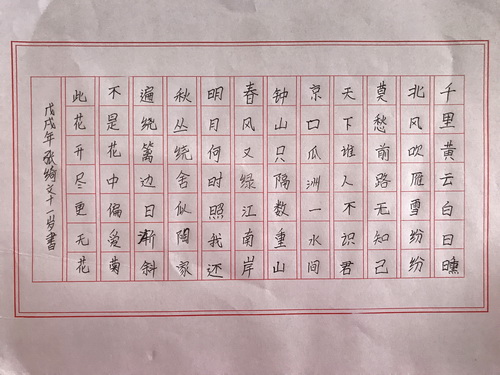 千里黄云白日曛
北风吹雁雪纷纷
莫愁前路无知己
天下谁人不识君
京口瓜洲一水间
钟山只隔数重山
春风又绿江南岸
明月何时照我还
秋丛绕舍似陶家
遍绕篱边日渐斜
不是花中偏爱菊
此花开尽更无花
戊戌年 张绮文十一岁书